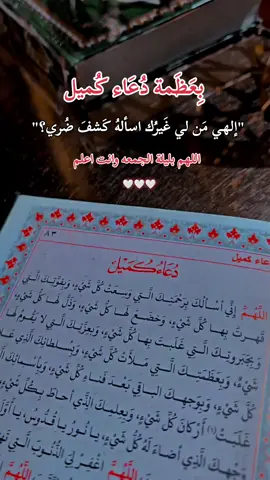 بِعَظَمة دُعَاءِ كُميل
"إلهي مَن لي غَيرُك اسألهُ كَشفَ ضُري؟"
اللهم بليلة الجمعه وانت اعلم
دعاء كميل
٨٣
دُعَاءُ كُمَيْل
اَللّٰهُمَّ اِنِّي اَسْأَلُكَ بِرَحْمَتِكَ الَّتي وَسِعَتْ كُلَّ شَيْءٍ، وَبِقُوَّتِكَ الَّتي
قَهَرْتَ بِها كُلَّ شَيْءٍ، وَخَضَعَ لَها كُلُّ شَيْءٍ، وَذَلَّ لَها كُلُّ شَيْءٍ،
وَبِجَبَرُوتِكَ الَّتي غَلَبْتَ بِها كُلَّ شَيْءٍ، وَبِعِزَّتِكَ الَّتي لا يَقُومُ لَها
شَيْءٌ، وَبِعَظَمَتِكَ الَّتي مَلَأَتْ كُلَّ شَيْءٍ، وَبِسُلْطانِكَ الَّذي عَلا
كُلَّ شَيْءٍ، وَبِوَجْهِكَ الْباقي بَعْدَ فَناءِ كُلِّ شَيْءٍ، وَبِأَسْمائِكَ الَّتي
غَلَبَتْ(١) اَرْكانَ كُلِّ شَيْءٍ، وَبِعِلْمِكَ الَّذي اَحاطَ بِكُلِّ شَيْءٍ
وَجْهِكَ الَّذي اَضاءَ لَهُ كُلُّ شَيْءٍ، يا نُورُ يا قُدُّوسُ، يا اَوَّلَ
اغْفِرْ لِيَ الذُّنُوبَ الَّتي
اَللّٰهُمَّ